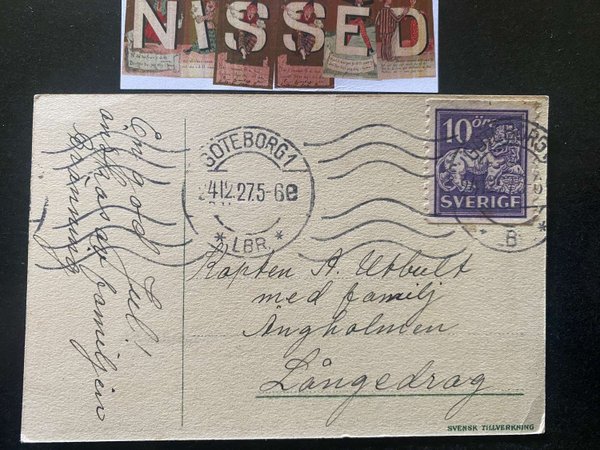 NISSED
En god Jul!
önskas av familjen
Bränning
GÖTEBORG 1
24 12.27.5-6 E
* LBR. *
10 öre
SVERIGE
B *
Kapten A. Utbult
med familj
Ängholmen
Långedrag
SVENSK TILLVERKNING